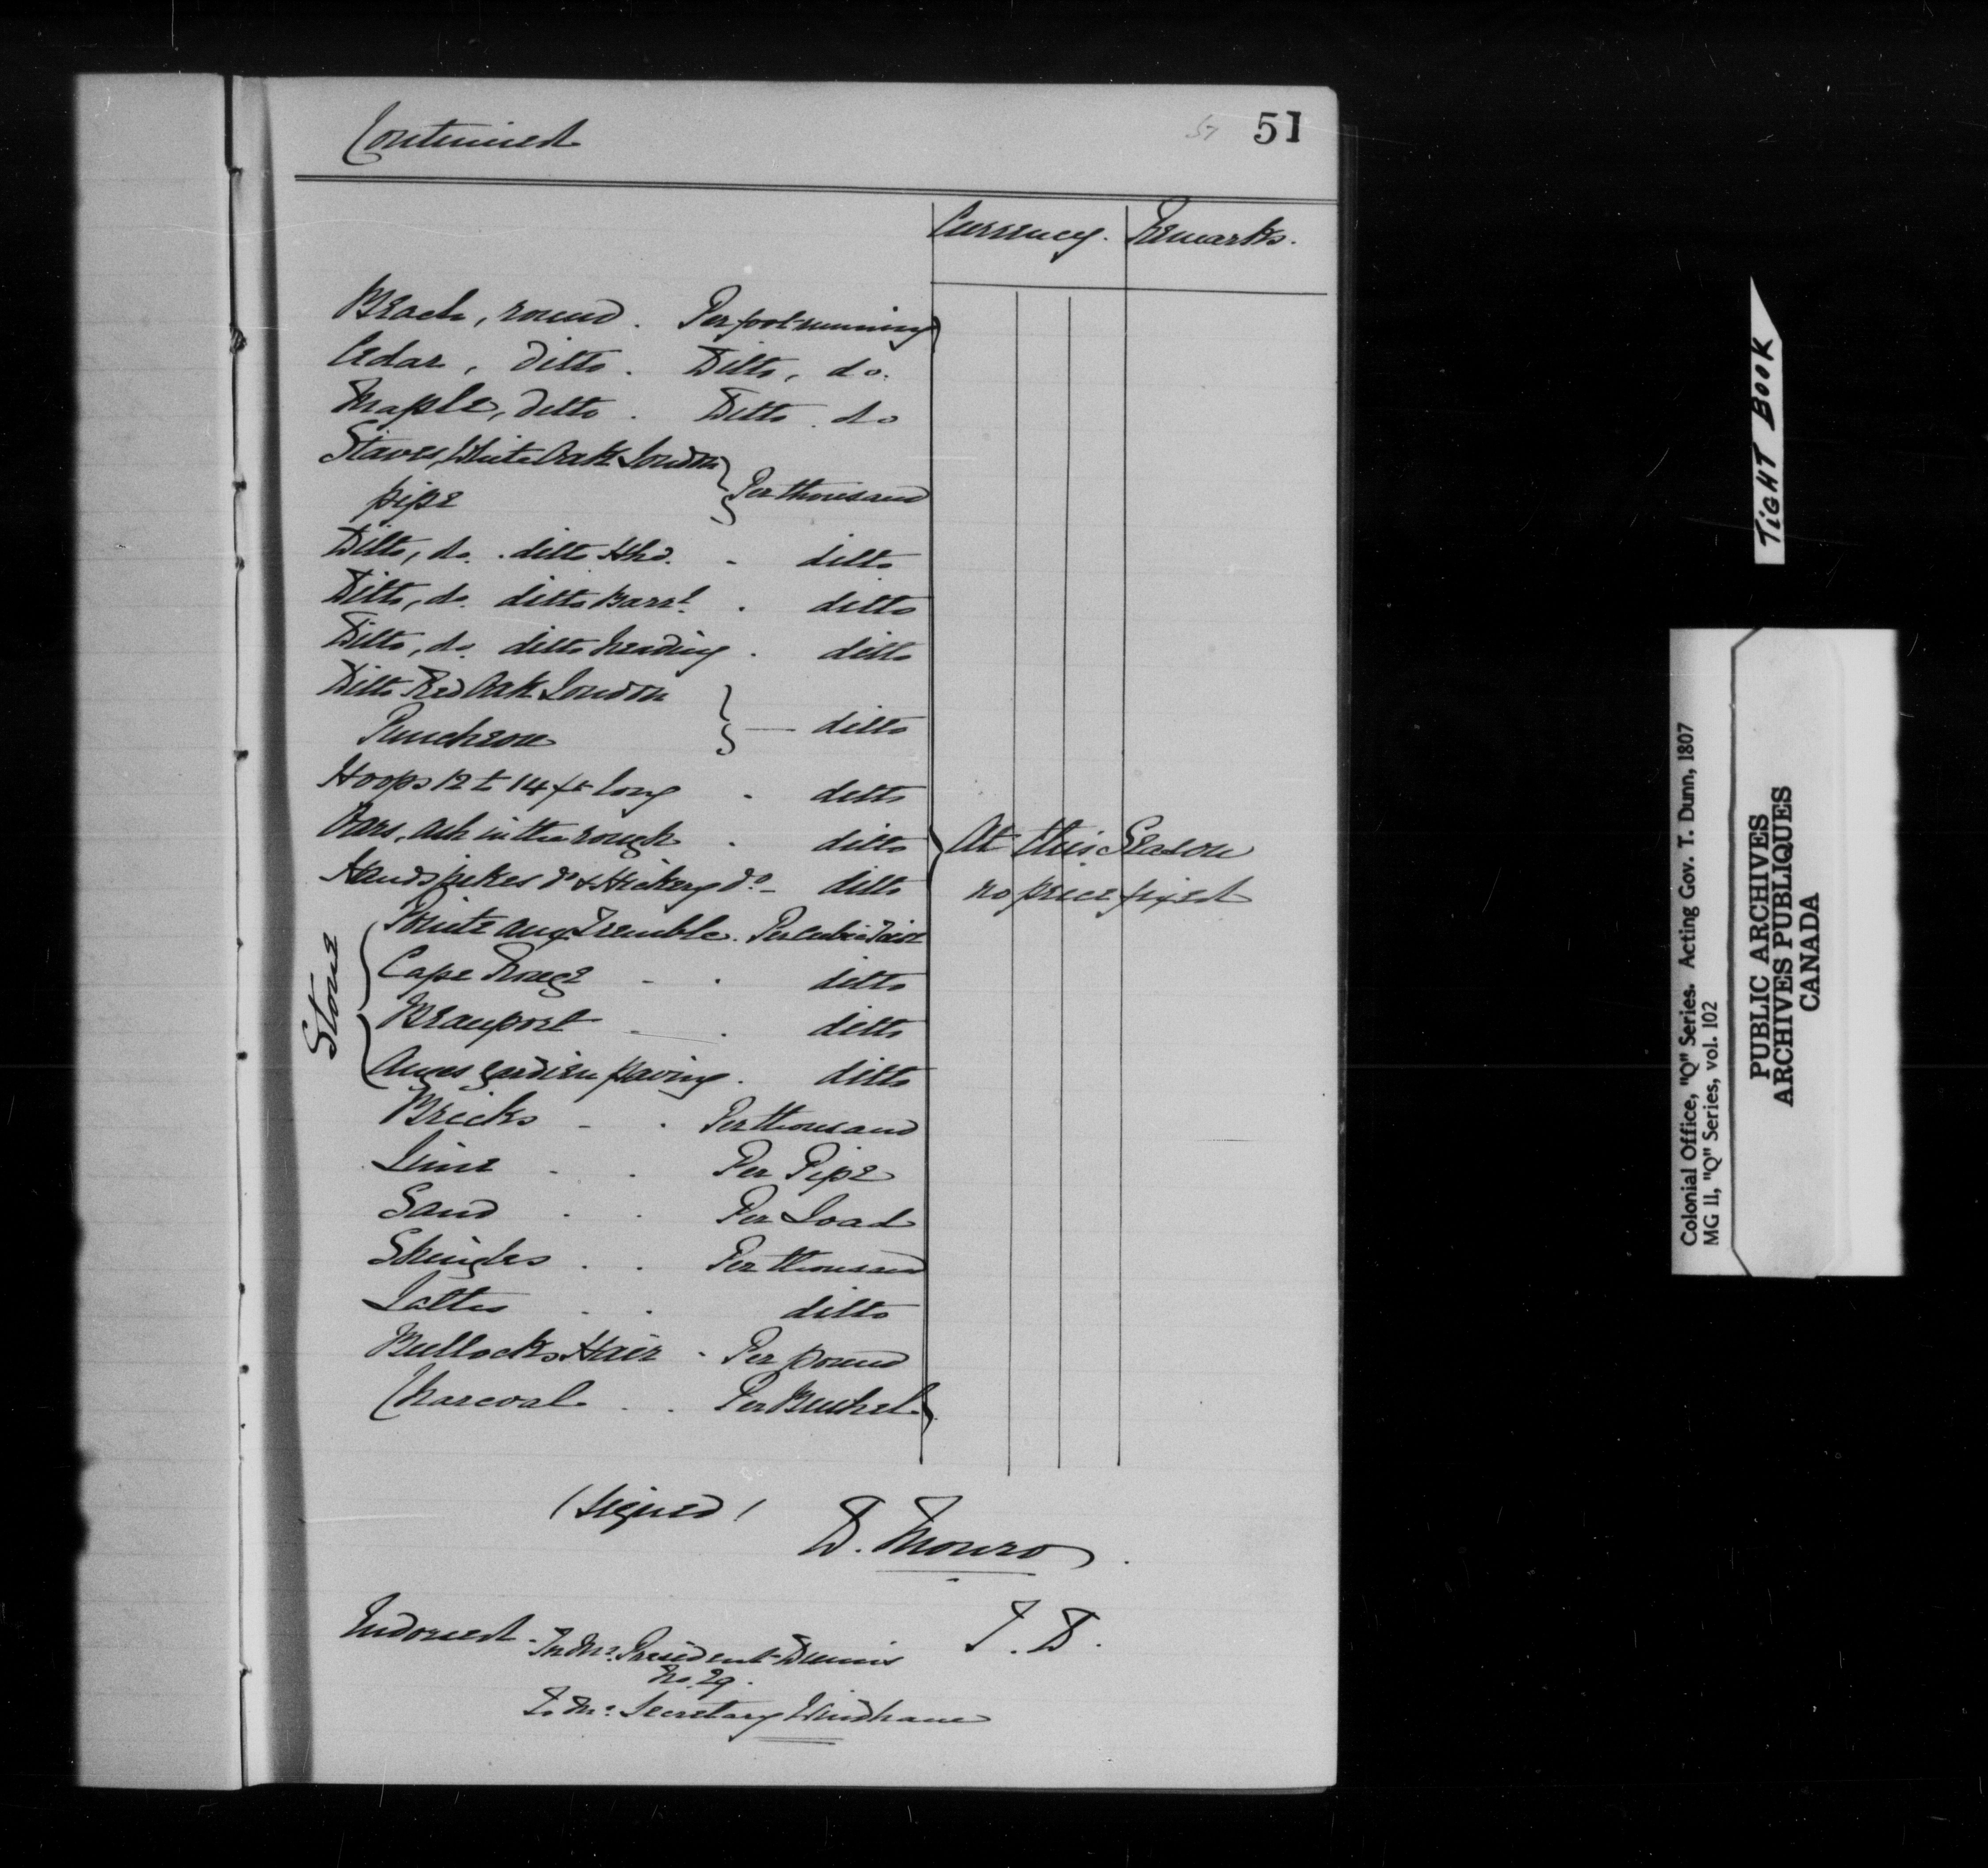 Continued
57 51
Currency. Remarks.
Beach, round. Per foot running
Cedar, ditto. Ditto, do.
Maple, ditto. Ditto do
Staves, White Oak London
pipe } Per thousand
Ditto, do. ditto Hhd. - ditto
Ditto, do. ditto Barrl. . ditto
Ditto, do. ditto heading. ditto
Ditto Red Oak London
Puncheon } — ditto
Hoops 12 to 14 ft long - ditto
Oars, ash in the rough . ditto
Handspikes do & Hickery do - ditto
At this Season
no price fixed
Stone
Pointe aux Tremble. Per cubic Toise
Cape Rouge - . ditto
Beauport - . ditto
Anges gardien paving. ditto
Bricks - . Per thousand
Lime . . Per Pipe
Sand . . Per Load
Shingles . . Per thousand
Lattes . . ditto
Bullocks Hair - Per pound
Charcoal . . Per Bushel
(signed) D. Monro.
T. D.
Endorsed. In Mr. President Dunn's
No. 29.
To Mr. Secretary Windham
TIGHT BOOK
Colonial Office, "Q" Series. Acting Gov. T. Dunn, 1807
MG 11, "Q" Series, vol. 102
PUBLIC ARCHIVES
ARCHIVES PUBLIQUES
CANADA